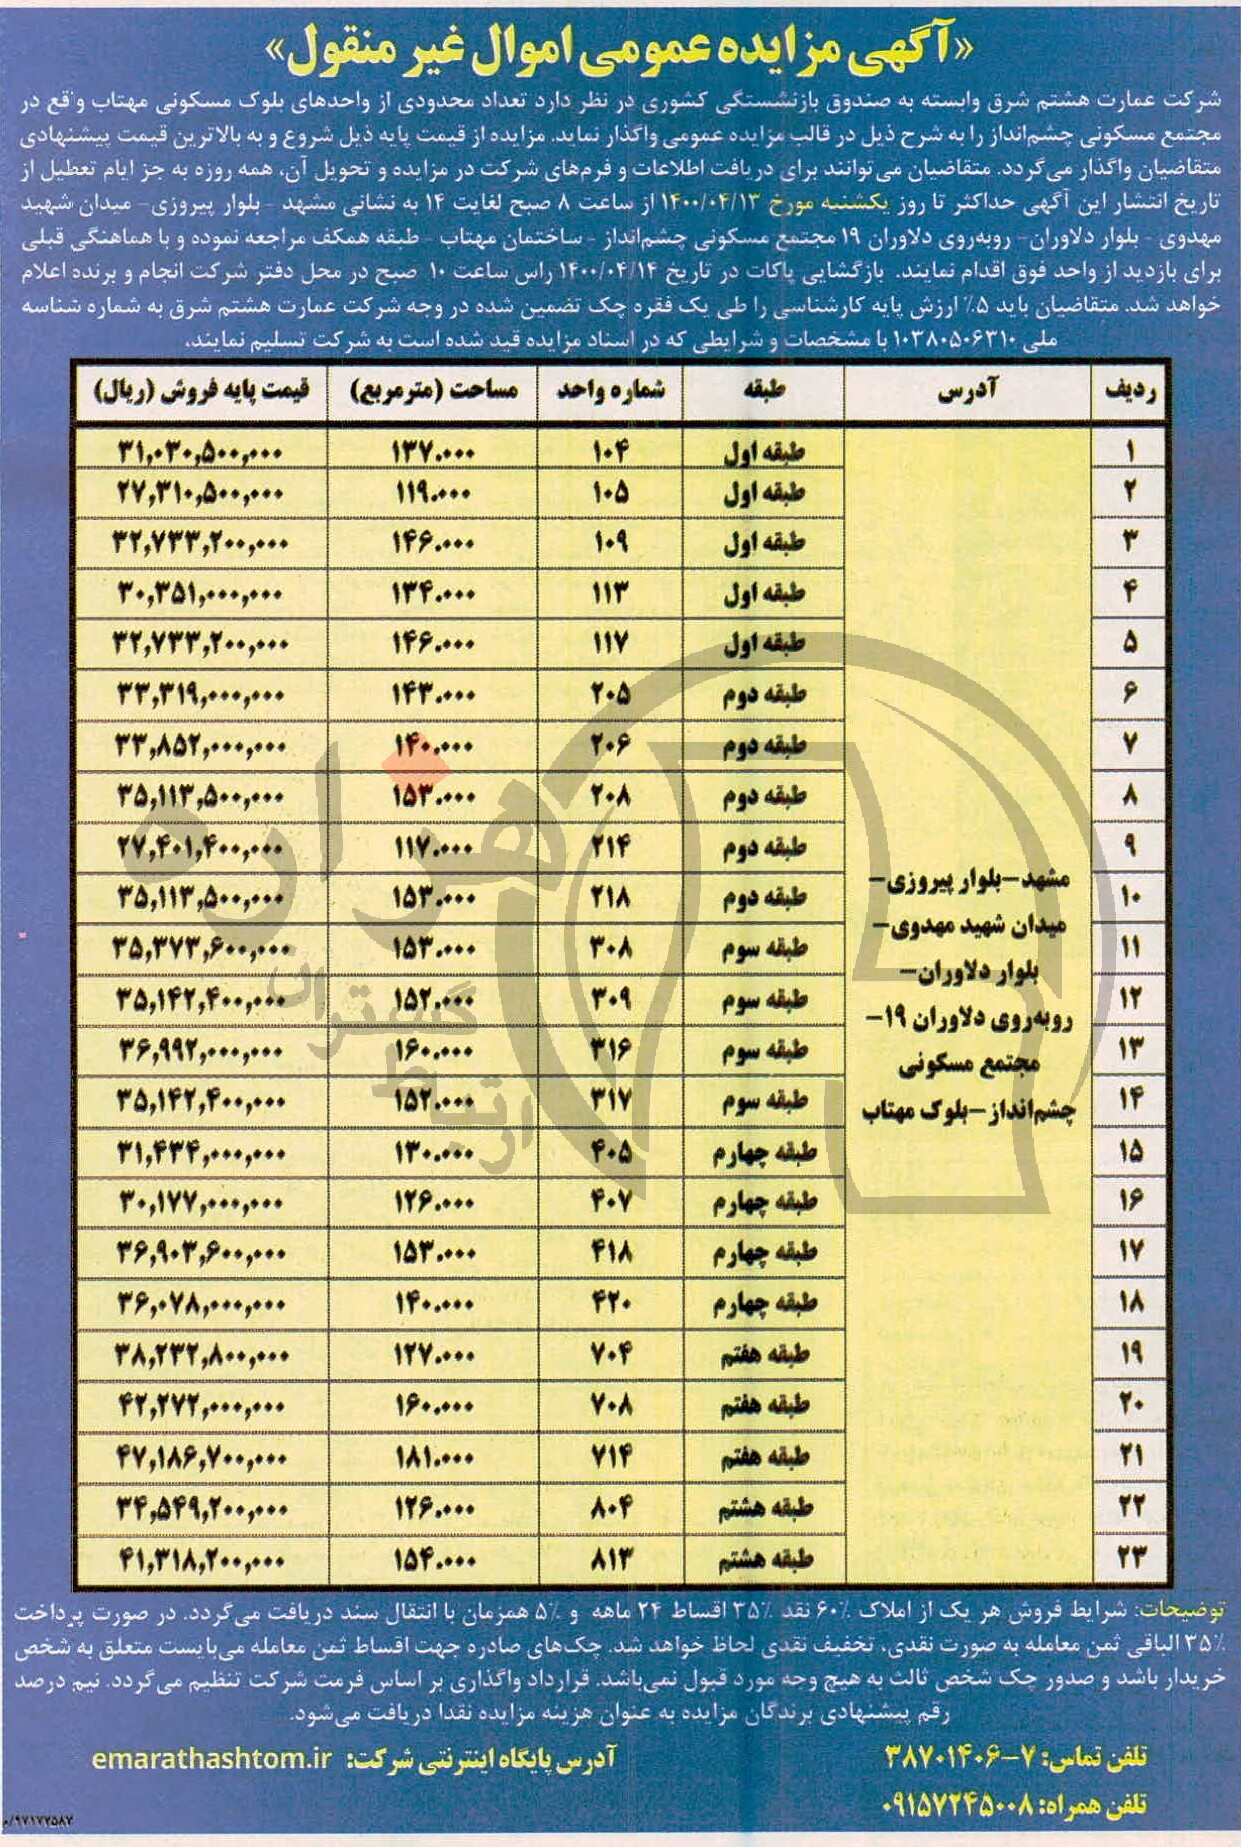 «آگهی مزایده عمومی اموال غیر منقول»
شرکت عمارت هشتم شرق وابسته به صندوق بازنشستگی کشوری در نظر دارد تعداد محدودی از واحدهای بلوک مسکونی مهتاب واقع در
مجتمع مسکونی چشم‌انداز را به شرح ذیل در قالب مزایده عمومی واگذار نماید. مزایده از قیمت پایه ذیل شروع و به بالاترین قیمت پیشنهادی
متقاضیان واگذار می‌گردد. متقاضیان می‌توانند برای دریافت اطلاعات و فرم‌های شرکت در مزایده و تحویل آن، همه روزه به جز ایام تعطیل از
تاریخ انتشار این آگهی حداکثر تا روز یکشنبه مورخ ۱۴۰۰/۰۴/۱۳ از ساعت ۸ صبح لغایت ۱۴ به نشانی مشهد - بلوار پیروزی- میدان شهید
مهدوی - بلوار دلاوران- روبه‌روی دلاوران ۱۹ مجتمع مسکونی چشم‌انداز - ساختمان مهتاب - طبقه همکف مراجعه نموده و با هماهنگی قبلی
برای بازدید از واحد فوق اقدام نمایند. بازگشایی پاکات در تاریخ ۱۴۰۰/۰۴/۱۴ راس ساعت ۱۰ صبح در محل دفتر شرکت انجام و برنده اعلام
خواهد شد. متقاضیان باید ۵٪ ارزش پایه کارشناسی را طی یک فقره چک تضمین شده در وجه شرکت عمارت هشتم شرق به شماره شناسه
ملی ۱۰۳۸۰۵۰۶۳۱۰ با مشخصات و شرایطی که در اسناد مزایده قید شده است به شرکت تسلیم نمایند.
ردیف آدرس طبقه شماره واحد مساحت (مترمربع) قیمت پایه فروش (ریال)
۱ طبقه اول ۱۰۴ ۱۳۷.۰۰۰ ۳۱,۰۳۰,۵۰۰,۰۰۰
۲ طبقه اول ۱۰۵ ۱۱۹.۰۰۰ ۲۷,۳۱۰,۵۰۰,۰۰۰
۳ طبقه اول ۱۰۹ ۱۴۶.۰۰۰ ۳۲,۷۳۳,۲۰۰,۰۰۰
۴ طبقه اول ۱۱۳ ۱۳۴.۰۰۰ ۳۰,۳۵۱,۰۰۰,۰۰۰
۵ طبقه اول ۱۱۷ ۱۴۶.۰۰۰ ۳۲,۷۳۳,۲۰۰,۰۰۰
۶ طبقه دوم ۲۰۵ ۱۴۳.۰۰۰ ۳۳,۳۱۹,۰۰۰,۰۰۰
۷ طبقه دوم ۲۰۶ ۱۴۰.۰۰۰ ۳۳,۸۵۲,۰۰۰,۰۰۰
۸ طبقه دوم ۲۰۸ ۱۵۳.۰۰۰ ۳۵,۱۱۳,۵۰۰,۰۰۰
۹ طبقه دوم ۲۱۴ ۱۱۷.۰۰۰ ۲۷,۴۰۱,۴۰۰,۰۰۰
۱۰ طبقه دوم ۲۱۸ ۱۵۳.۰۰۰ ۳۵,۱۱۳,۵۰۰,۰۰۰
۱۱ طبقه سوم ۳۰۸ ۱۵۳.۰۰۰ ۳۵,۳۷۳,۶۰۰,۰۰۰
۱۲ طبقه سوم ۳۰۹ ۱۵۲.۰۰۰ ۳۵,۱۴۲,۴۰۰,۰۰۰
۱۳ طبقه سوم ۳۱۶ ۱۶۰.۰۰۰ ۳۶,۹۹۲,۰۰۰,۰۰۰
۱۴ طبقه سوم ۳۱۷ ۱۵۲.۰۰۰ ۳۵,۱۴۲,۴۰۰,۰۰۰
۱۵ طبقه چهارم ۴۰۵ ۱۳۰.۰۰۰ ۳۱,۴۳۴,۰۰۰,۰۰۰
۱۶ طبقه چهارم ۴۰۷ ۱۲۶.۰۰۰ ۳۰,۱۷۷,۰۰۰,۰۰۰
۱۷ طبقه چهارم ۴۱۸ ۱۵۳.۰۰۰ ۳۶,۹۰۳,۶۰۰,۰۰۰
۱۸ طبقه چهارم ۴۲۰ ۱۴۰.۰۰۰ ۳۶,۰۷۸,۰۰۰,۰۰۰
۱۹ طبقه هفتم ۷۰۴ ۱۲۷.۰۰۰ ۳۸,۲۳۲,۸۰۰,۰۰۰
۲۰ طبقه هفتم ۷۰۸ ۱۶۰.۰۰۰ ۴۲,۲۷۲,۰۰۰,۰۰۰
۲۱ طبقه هفتم ۷۱۴ ۱۸۱.۰۰۰ ۴۷,۱۸۶,۷۰۰,۰۰۰
۲۲ طبقه هشتم ۸۰۴ ۱۲۶.۰۰۰ ۳۴,۵۴۹,۲۰۰,۰۰۰
۲۳ طبقه هشتم ۸۱۳ ۱۵۴.۰۰۰ ۴۱,۳۱۸,۲۰۰,۰۰۰
مشهد-بلوار پیروزی-
میدان شهید مهدوی-
بلوار دلاوران-
روبه‌روی دلاوران ۱۹-
مجتمع مسکونی
چشم‌انداز-بلوک مهتاب
هزاره
توضیحات: شرایط فروش هر یک از املاک ۶۰٪ نقد ۳۵٪ اقساط ۲۴ ماهه و ۵٪ همزمان با انتقال سند دریافت می‌گردد. در صورت پرداخت
۳۵٪ الباقی ثمن معامله به صورت نقدی، تخفیف نقدی لحاظ خواهد شد. چک‌های صادره جهت اقساط ثمن معامله می‌بایست متعلق به شخص
خریدار باشد و صدور چک شخص ثالث به هیچ وجه مورد قبول نمی‌باشد. قرارداد واگذاری بر اساس فرمت شرکت تنظیم می‌گردد. نیم درصد
رقم پیشنهادی برندگان مزایده به عنوان هزینه مزایده نقدا دریافت می‌شود.
تلفن تماس: ۷-۳۸۷۰۱۴۰۶ آدرس پایگاه اینترنتی شرکت: emarathashtom.ir
تلفن همراه: ۰۹۱۵۷۲۴۵۰۰۸
۰/۹۷۱۷۷۵۸۷